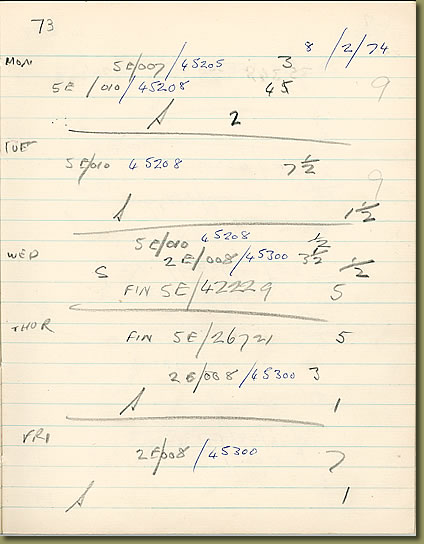 73
8/2/74
MON 5E/007/45205 3
5E/010/45208 45 9
S 2
TUE
5E/010 45208 7½
9
S 1½
5E/010 45208 ½
WED 2E/008/45300 3½
S ½
FIN 5E/42229 5
THUR FIN 5E/26721 5
2E/008/45300 3
S 1
FRI
2E/008/45300 7
S 1